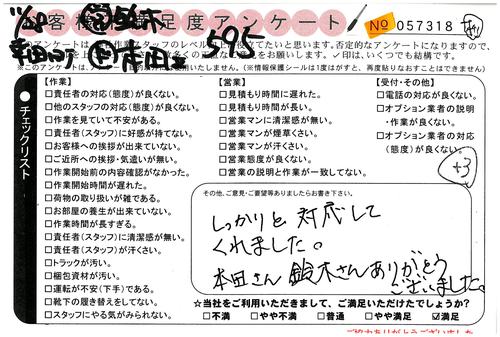 お客様満足度アンケート
No 057318
505
のアンケートは
作業スタッフのレベル
と役立てたいと思います。否定的なアンケートになりますので、
正見をお願いします。✓印は、いくつでも結構です。
使用いたしません。(※情報保護シールは1度はがすと、再度貼りなおすことはできません)
チェックリスト
【作業】
□責任者の対応(態度)が良くない。
□他のスタッフの対応(態度)が良くない。
□作業を見ていて不安がある。
□責任者(スタッフ)に好感が持てない。
□お客様への挨拶が出来ていない。
□ご近所への挨拶・気遣いが無い。
□作業開始前の内容確認がなかった。
□作業開始時間が遅れた。
□荷物の取り扱いが雑である。
□お部屋の養生が出来ていない。
□作業時間が長すぎる。
□責任者(スタッフ)に清潔感が無い。
□責任者(スタッフ)が汗くさい。
□トラックが汚い。
□梱包資材が汚い。
□運転が不安(下手)である。
□靴下の履き替えをしてない。
□スタッフにやる気がみられない。
【営業】
□見積もり時間に遅れた。
□見積もり時間が長い。
□営業マンに清潔感が無い。
□営業マンが煙草くさい。
□営業マンが汗くさい。
□営業態度が良くない。
□営業の説明と作業が一致してない。
【受付・その他】
□電話の対応が良くない。
□オプション業者の説明
・作業が良くない。
□オプション業者の対応
(態度)が良くない。
+3
その他、ご意見・ご要望等ありましたらお書き下さい。
しっかりと対応して
くれました。
本田さん 鈴木さんありがとう
ございました。
☆当社をご利用いただきまして、ご満足いただけたでしょうか?
□不満 □やや不満 □普通 □やや満足 ☑満足
ご協力ありがとうございました